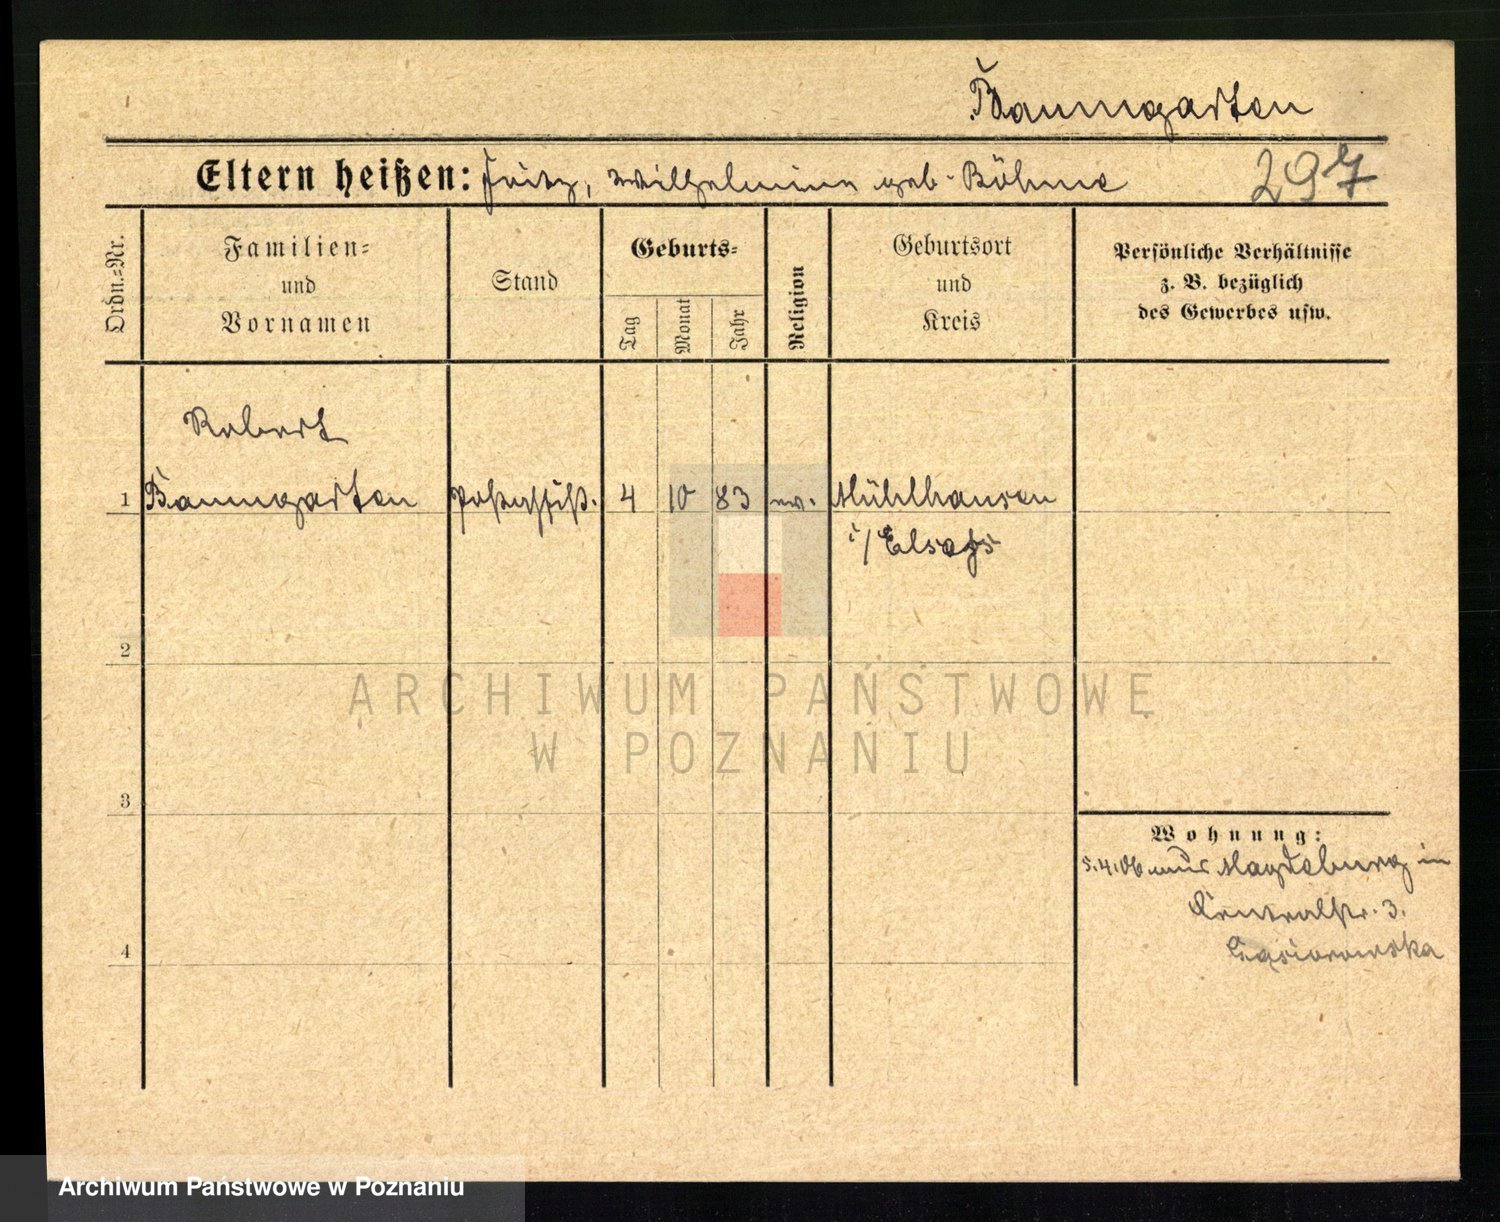 Baumgarten
Eltern heißen: Fritz, Wilhelmine geb. Böhme
297
Ordn.=Nr.
Familien=
und
Vornamen
Stand
Geburts=
Tag
Monat
Jahr
Religion
Geburtsort
und
Kreis
Persönliche Verhältnisse
z. B. bezüglich
des Gewerbes usw.
Robert
1 Baumgarten Postassist. 4 10 83 ev. Mühlhausen
i/Elsaß
2
ARCHIWUM PAŃSTWOWE
W POZNANIU
3
Wohnung:
5.4.06 aus Magdeburg in
Centralstr. 3.
Gąsiorowska
4
Archiwum Państwowe w Poznaniu